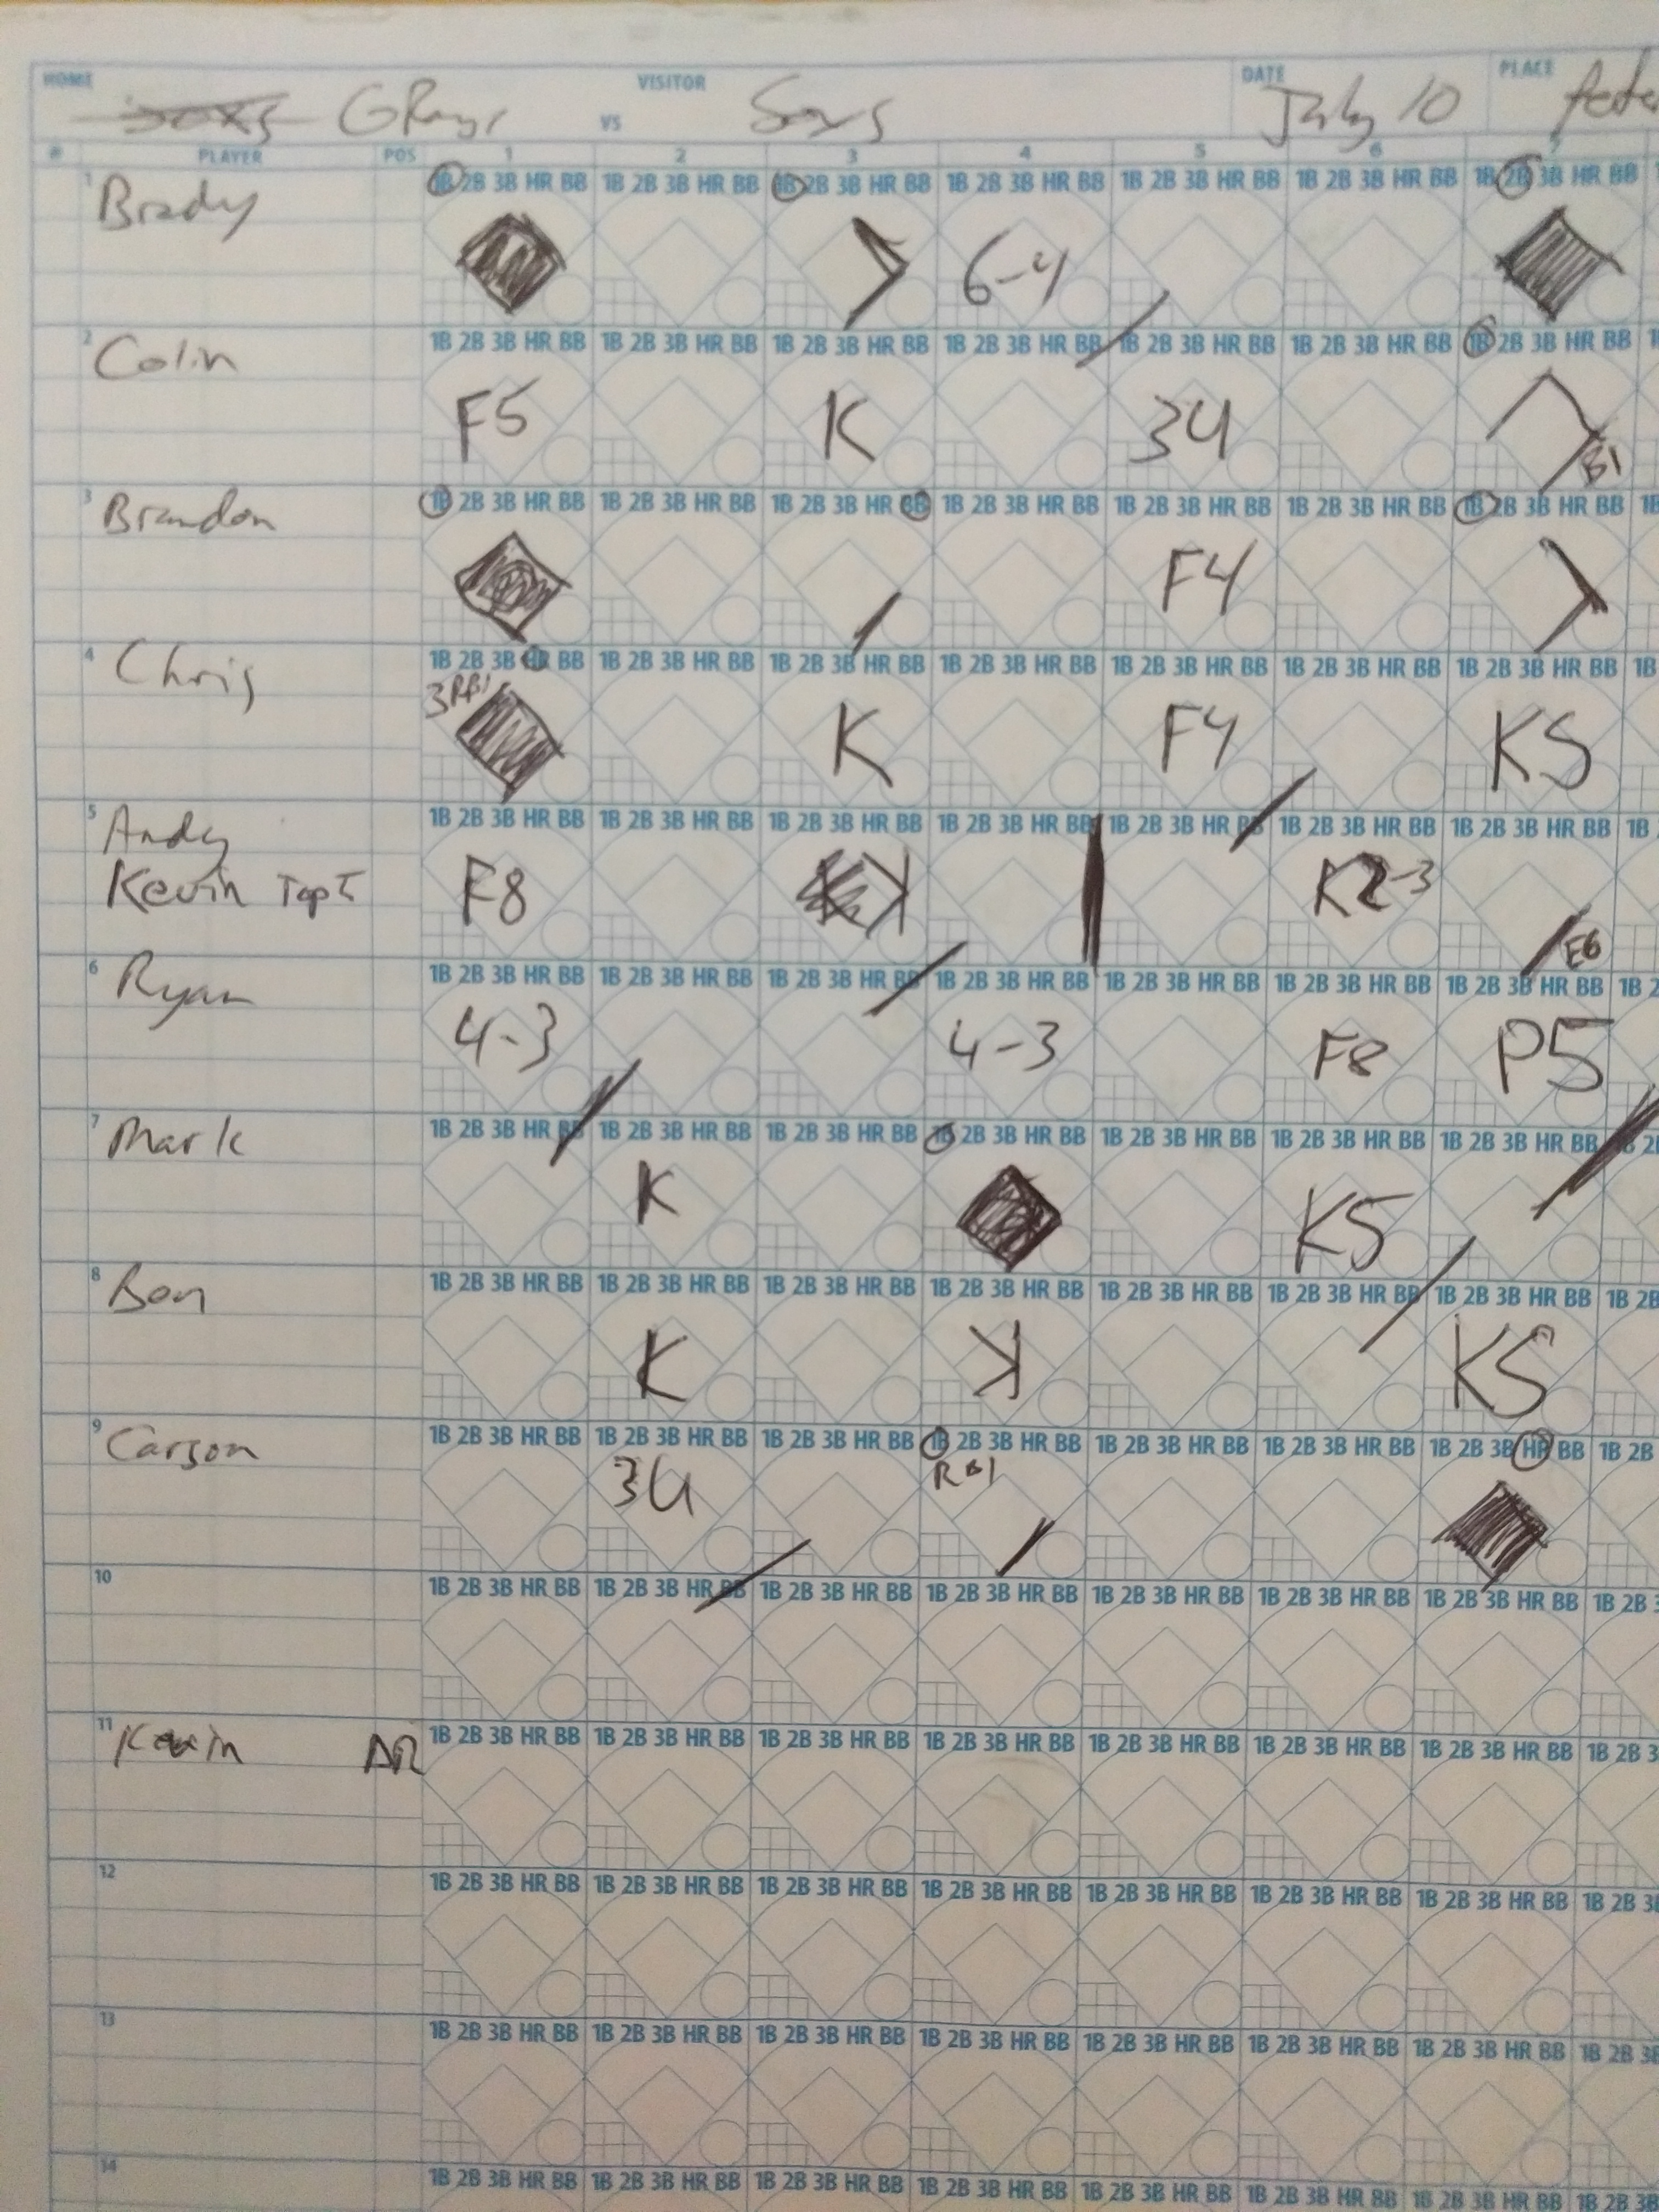 HOME VISITOR DATE PLACE
GRays VS Soxs July 10
# PLAYER POS 1 2 3 4 5 6 7
1 1B 2B 3B HR BB 1B 2B 3B HR BB 1B 2B 3B HR BB 1B 2B 3B HR BB 1B 2B 3B HR BB 1B 2B 3B HR BB 1B 2B 3B HR BB
Brady 6-4
2 1B 2B 3B HR BB 1B 2B 3B HR BB 1B 2B 3B HR BB 1B 2B 3B HR BB 1B 2B 3B HR BB 1B 2B 3B HR BB 1B 2B 3B HR BB 1
Colin F5 K 3U BI
3 1B 2B 3B HR BB 1B 2B 3B HR BB 1B 2B 3B HR BB 1B 2B 3B HR BB 1B 2B 3B HR BB 1B 2B 3B HR BB 1B 2B 3B HR BB 1B
Brandon F4
4 1B 2B 3B HR BB 1B 2B 3B HR BB 1B 2B 3B HR BB 1B 2B 3B HR BB 1B 2B 3B HR BB 1B 2B 3B HR BB 1B 2B 3B HR BB 1B
Chris 3RBI K F4 KS
5 1B 2B 3B HR BB 1B 2B 3B HR BB 1B 2B 3B HR BB 1B 2B 3B HR BB 1B 2B 3B HR BB 1B 2B 3B HR BB 1B 2B 3B HR BB 1B
Andy
Kevin Top 5 F8 K K2-3 E6
6 1B 2B 3B HR BB 1B 2B 3B HR BB 1B 2B 3B HR BB 1B 2B 3B HR BB 1B 2B 3B HR BB 1B 2B 3B HR BB 1B 2B 3B HR BB 1B 2
Ryan 4-3 4-3 F8 P5
7 1B 2B 3B HR BB 1B 2B 3B HR BB 1B 2B 3B HR BB 1B 2B 3B HR BB 1B 2B 3B HR BB 1B 2B 3B HR BB 1B 2B 3B HR BB
Mark K KS
8 1B 2B 3B HR BB 1B 2B 3B HR BB 1B 2B 3B HR BB 1B 2B 3B HR BB 1B 2B 3B HR BB 1B 2B 3B HR BB 1B 2B 3B HR BB 1B 2B
Ben K K KS
9 1B 2B 3B HR BB 1B 2B 3B HR BB 1B 2B 3B HR BB 1B 2B 3B HR BB 1B 2B 3B HR BB 1B 2B 3B HR BB 1B 2B 3B HR BB 1B 2B
Carson 3U RBI
10 1B 2B 3B HR BB 1B 2B 3B HR BB 1B 2B 3B HR BB 1B 2B 3B HR BB 1B 2B 3B HR BB 1B 2B 3B HR BB 1B 2B 3B HR BB 1B 2B 3
11 1B 2B 3B HR BB 1B 2B 3B HR BB 1B 2B 3B HR BB 1B 2B 3B HR BB 1B 2B 3B HR BB 1B 2B 3B HR BB 1B 2B 3B HR BB 1B 2B 3
Kevin AR
12 1B 2B 3B HR BB 1B 2B 3B HR BB 1B 2B 3B HR BB 1B 2B 3B HR BB 1B 2B 3B HR BB 1B 2B 3B HR BB 1B 2B 3B HR BB 1B 2B 3B
13 1B 2B 3B HR BB 1B 2B 3B HR BB 1B 2B 3B HR BB 1B 2B 3B HR BB 1B 2B 3B HR BB 1B 2B 3B HR BB 1B 2B 3B HR BB 1B 2B 3B
14 1B 2B 3B HR BB 1B 2B 3B HR BB 1B 2B 3B HR BB 1B 2B 3B HR BB 1B 2B 3B HR BB 1B 2B 3B HR BB 1B 2B 3B HR BB 1B 2B 3B